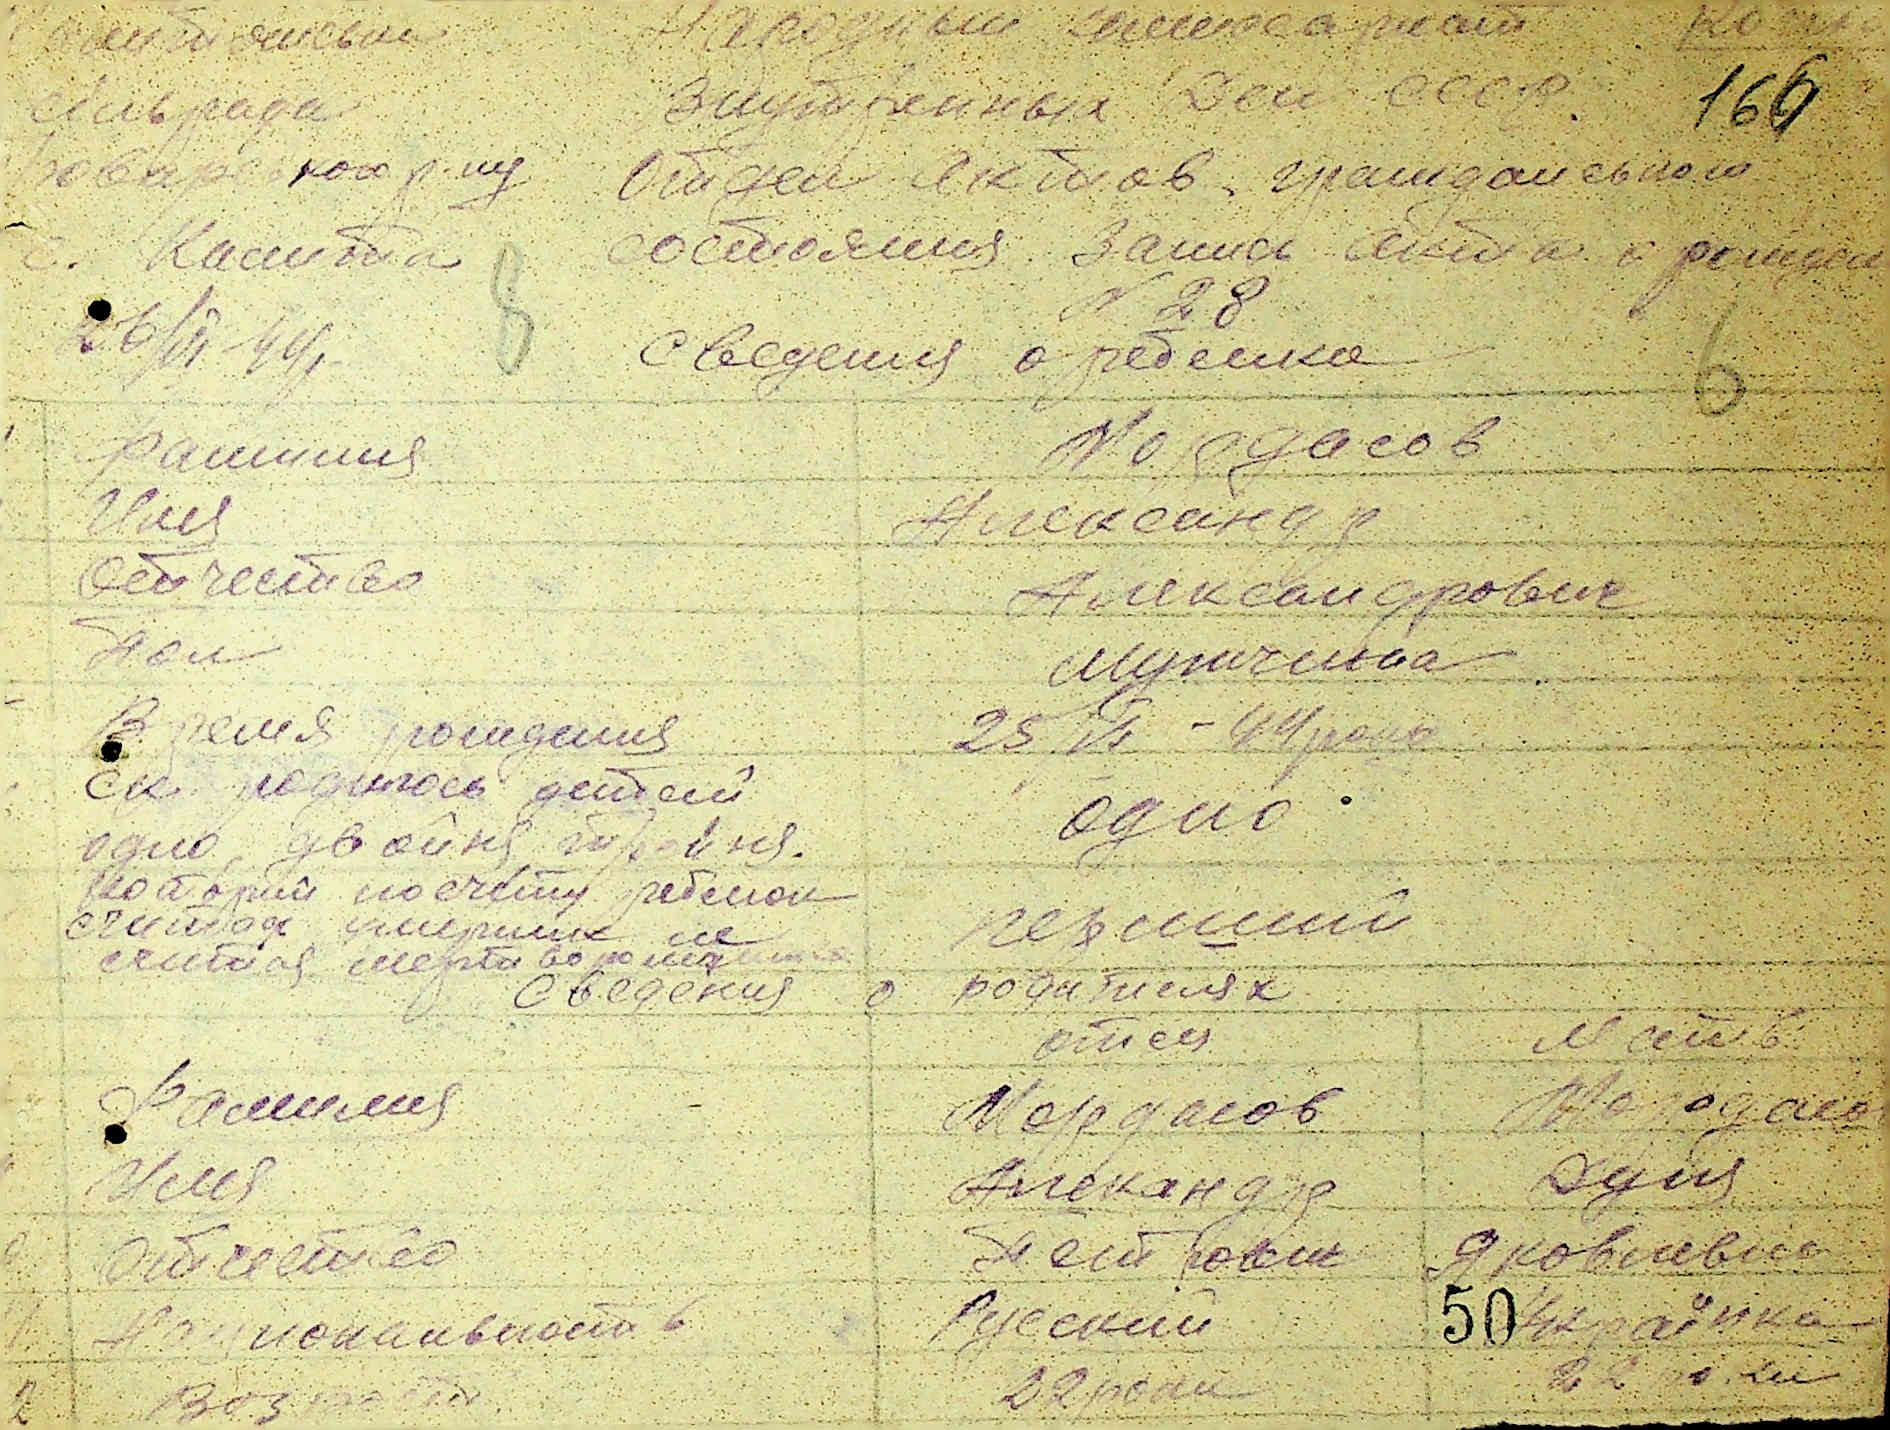 Народный комисариат Копия
сільрада Внутренных Дел СССР. 166
р-ну Отдел Актов гражданського
с. Калита состояния Запись Акта о рожден
8 N 28
26/VI 44 р. Сведения о ребенке 6
Фамилия Мордасов
Имя Александр
Отчество Александрович
Пол Мужчина
Время рождения 25 VI - 44 рока
Ск. родилось детей
одно, двойня, тройня. одно
который по счету ребенок
считая умерших не первший
считая мертворожденных
Сведения о родителях
отец Мать
Фамилия Мордасов Мордасо
Имя Алекандр Дуня
Отчество Петрович Яковлевна
Национальность Русский 50 Українка
2 Возраст 22 роки 22 роки